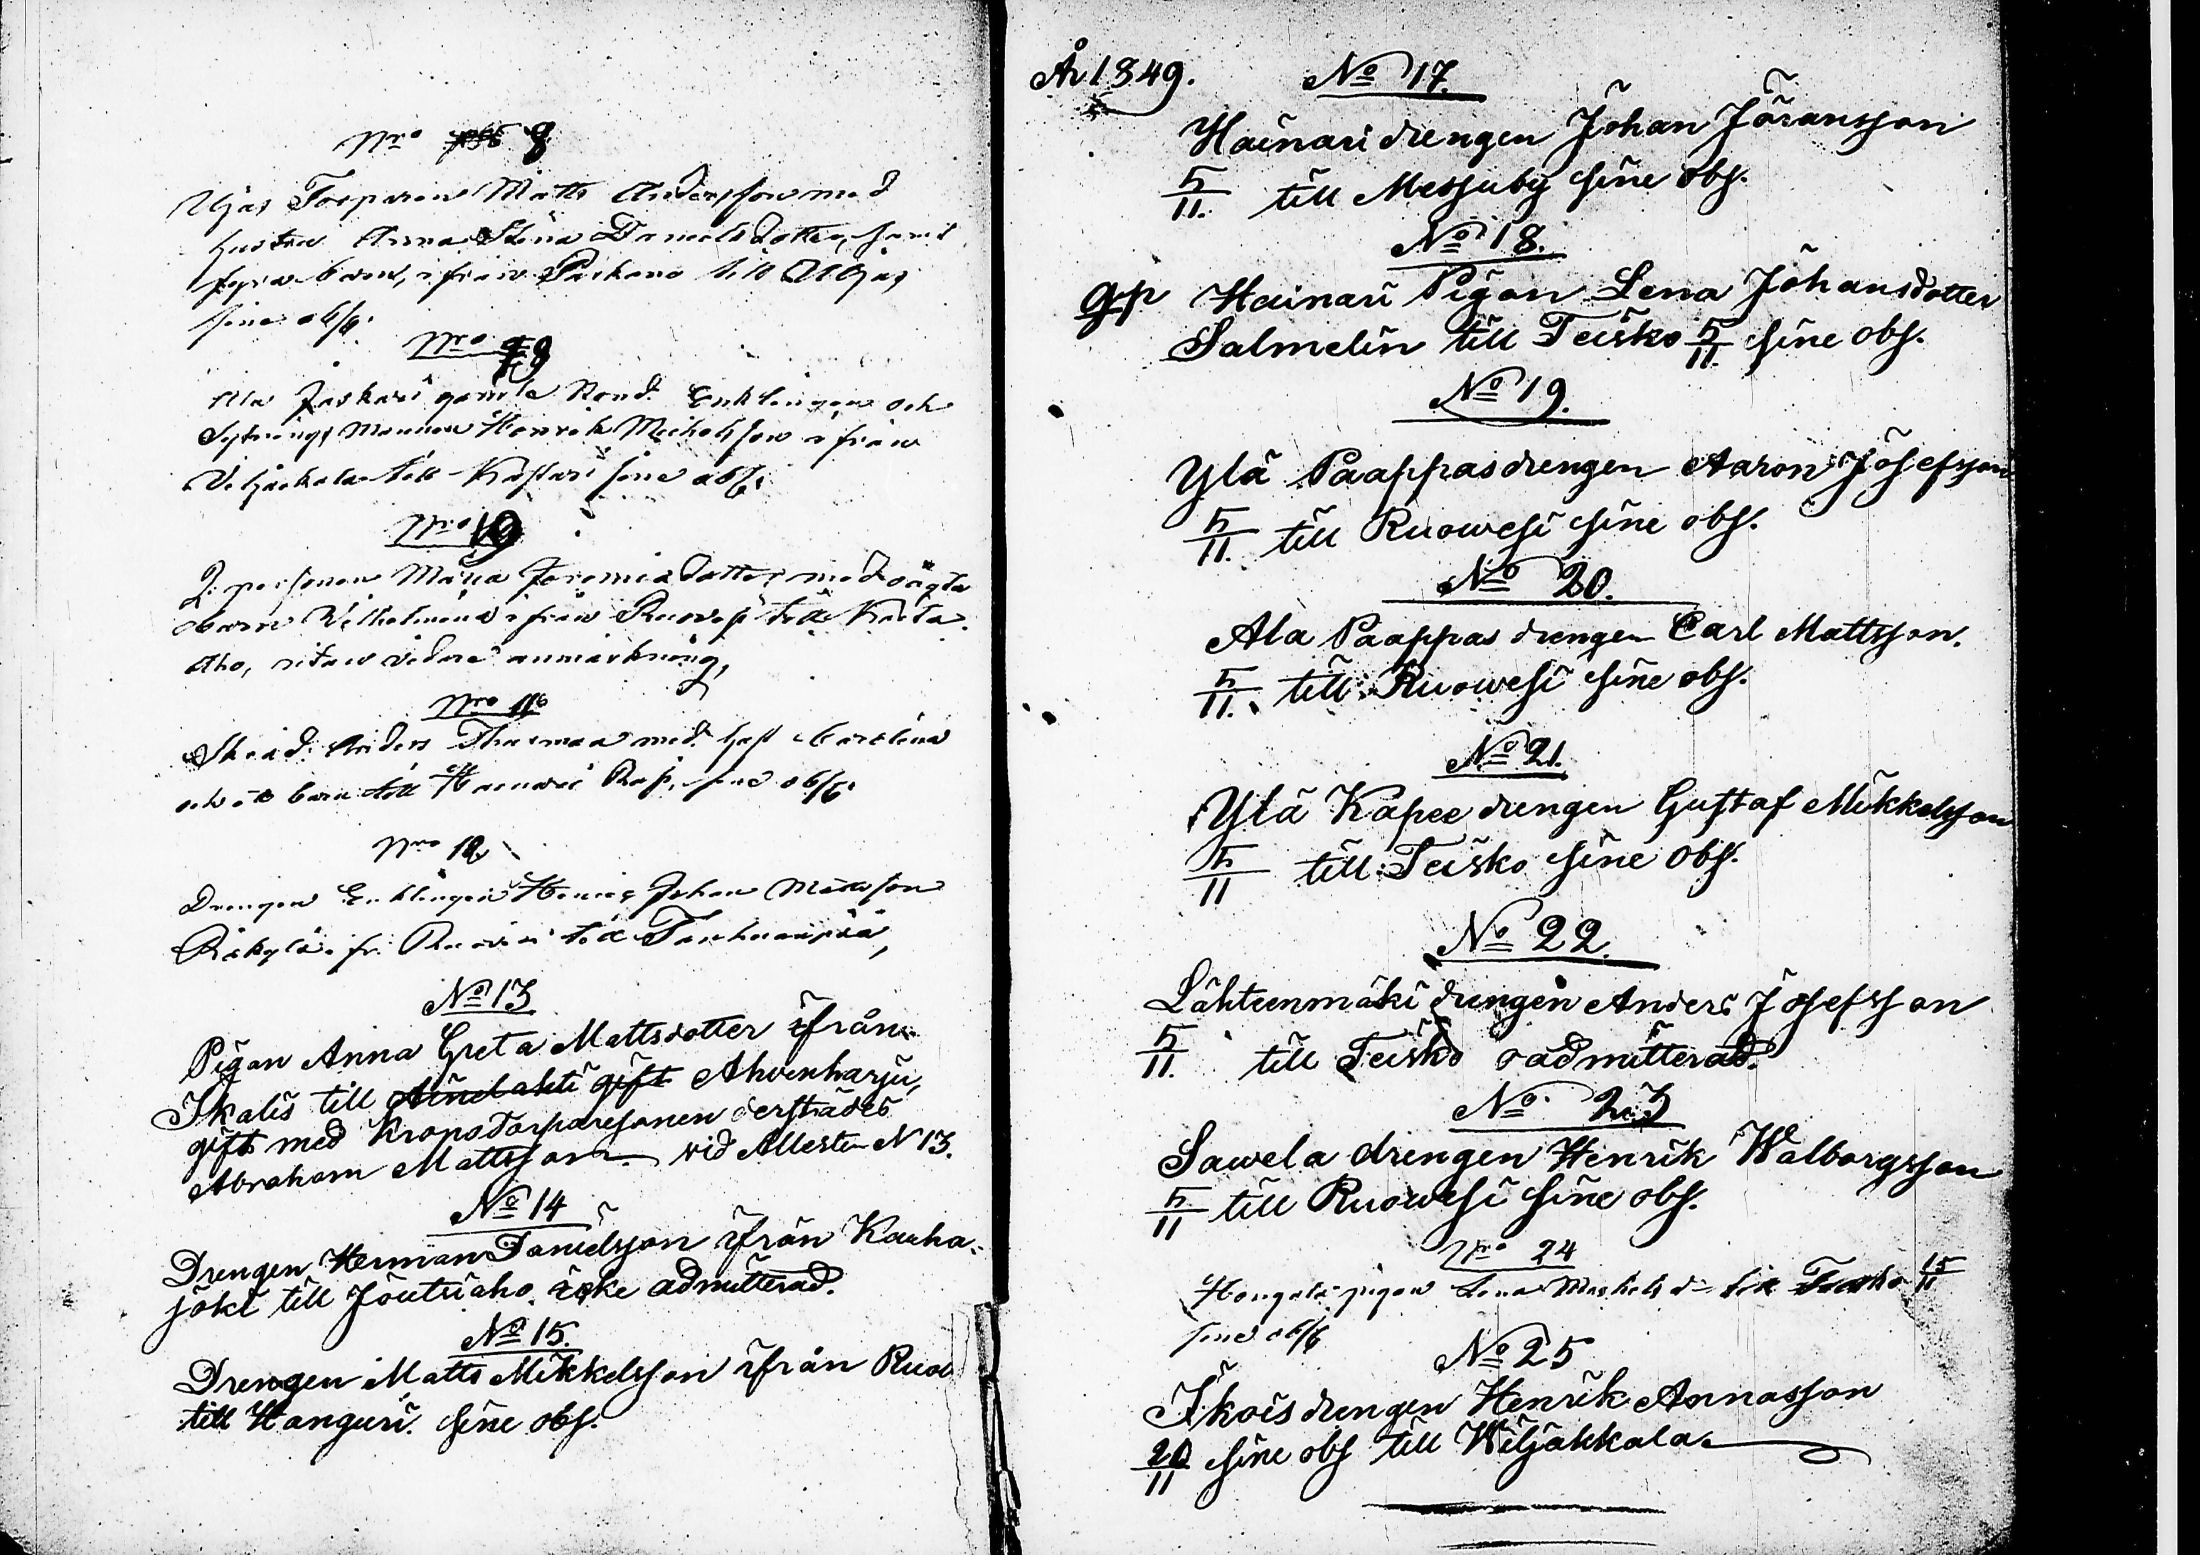 Nro 8
Torparen Matts Andersson med
hustru Anna Stina Danielsdotter, samt
fyra barn, ifrån Parkano till
sine obs.
Nro 9
Ala Jaskari gamle Bond. Enklingen och
Sytnings Mannen Henrik Michelsson ifrån
Viljackala till sine obs.
Nro 10
Q. personen Maria Jeremiadotter med oägta
barn Vilhelmina ifrån Ruoves till
aho, utan vidare anmärkning,
Nro 11
Anders med hust
och ett barn till sine obs.
Nro 12
Drengen Enklingen Johan Mattsson
fr. till
No 13
Pigan Anna Greta Mattsdotter ifrån
Ikalis till gift Ahvenharju,
gift med Kronotorparesonen derstädes
Abraham Mattsson vid Attesten N 13.
No 14
Drengen Herman Danielsson ifrån Kauha-
joki till Joutsiaho icke admitterad.
No 15.
Drengen Matts Mikkelsson ifrån Ruov
till Hanguri. sine obs.
År 1849.
No 17.
Hainari drengen Johan Jöransson
5/11. till Messuby sine obs.
No 18.
gp Hainari Pigan Lena Johansdotter
Salmelin till Teisko 5/11. sine obs.
No 19.
Ylä Paappas drengen Aaron Josefsson
5/11. till Ruowesi sine obs.
No 20.
Ala Paappas drengen Carl Mattsson.
5/11. till Ruowesi sine obs.
No 21.
Ylä Kapee drengen Gustaf Mikkelsson
5/11 till Teisko sine obs.
No 22.
Lähteenmäki drengen Anders Josefsson
5/11. till Teisko oadmitterad.
No. 23
Sawela drengen Henrik Walborgsson
5/11 till Ruowesi sine obs.
Nro 24
pigan Lena till Teisko 15/11
sine obs
No 25
Ikois drengen Henrik Annasson
20/11 sine obs till Wiljakkala.